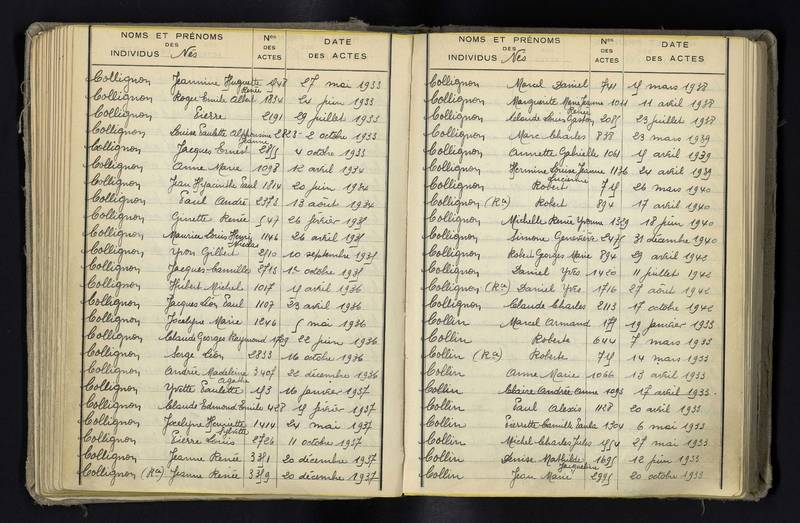 NOMS ET PRÉNOMS DES INDIVIDUS Nés | Nos DES ACTES | DATE DES ACTES
Collignon Jeannine Huguette Renée 27 mai 1933
Collignon Roger Emile Albert 1834 21 juin 1933
Collignon Pierre 2191 29 juillet 1933
Collignon Louise Paulette Alphonsine Jeanne 2823 2 octobre 1933
Collignon Jacques Ernest 4 octobre 1933
Collignon Anne Marie 1098 12 avril 1934
Collignon Jean Hyacinthe Paul 1814 20 juin 1934
Collignon Paul André 2373 13 août 1934
Collignon Ginette Renée 547 26 février 1935
Collignon Maurice Louis Henri Nicolas 1146 26 avril 1935
Collignon Yvon Gilbert 10 septembre 1935
Collignon Jacques Camille 15 octobre 1935
Collignon Hubert Michel 1017 avril 1936
Collignon Jacques Léon Paul 1107 23 avril 1936
Collignon Jocelyne Marie 1246 5 mai 1936
Collignon Claude Georges Raymond 1769 22 juin 1936
Collignon Serge Léon 2833 16 octobre 1936
Collignon Andrée Madeleine Agathe 3407 22 décembre 1936
Collignon Yvette Paulette 153 16 janvier 1937
Collignon Claude Edmond Emile 428 février 1937
Collignon Jocelyne Henriette Sylvette 1414 24 mai 1937
Collignon Pierre Louis 2726 11 octobre 1937
Collignon Jeanne Renée 20 décembre 1937
Collignon (Rn) Jeanne Renée 20 décembre 1937
NOMS ET PRÉNOMS DES INDIVIDUS Nés | Nos DES ACTES | DATE DES ACTES
Collignon Marcel Daniel 741 mars 1938
Collignon Marguerite Marie Jeanne Renée 1011 11 avril 1938
Collignon Claude Louis Gaston 23 juillet 1938
Collignon Marc Charles 838 23 mars 1939
Collignon Annette Gabrielle 1061 avril 1939
Collignon Hermine Louise Jeanne Lucienne 1136 24 avril 1939
Collignon Robert 26 mars 1940
Collignon (Rn) Robert 894 17 avril 1940
Collignon Michelle Renée Yvonne 1359 18 juin 1940
Collignon Simone Geneviève 2475 31 décembre 1940
Collignon Robert Georges Marie 894 29 avril 1942
Collignon Daniel Yves 1420 11 juillet 1942
Collignon (Rn) Daniel Yves 1716 27 août 1942
Collignon Claude Charles 2113 17 octobre 1942
Collin Marcel Armand 19 janvier 1933
Collin Roberte 644 7 mars 1933
Collin (Rn) Roberte 14 mars 1933
Collin Anne Marie 1066 13 avril 1933
Collin Claire Andrée Anne 1095 17 avril 1933
Collin Paul Alexis 1128 20 avril 1933
Collin Pierrette Camille Paula 1304 6 mai 1933
Collin Michel Charles Jules 27 mai 1933
Collin Denise Mathilde Jacqueline 1695 12 juin 1933
Collin Jean Marie 2995 20 octobre 1933